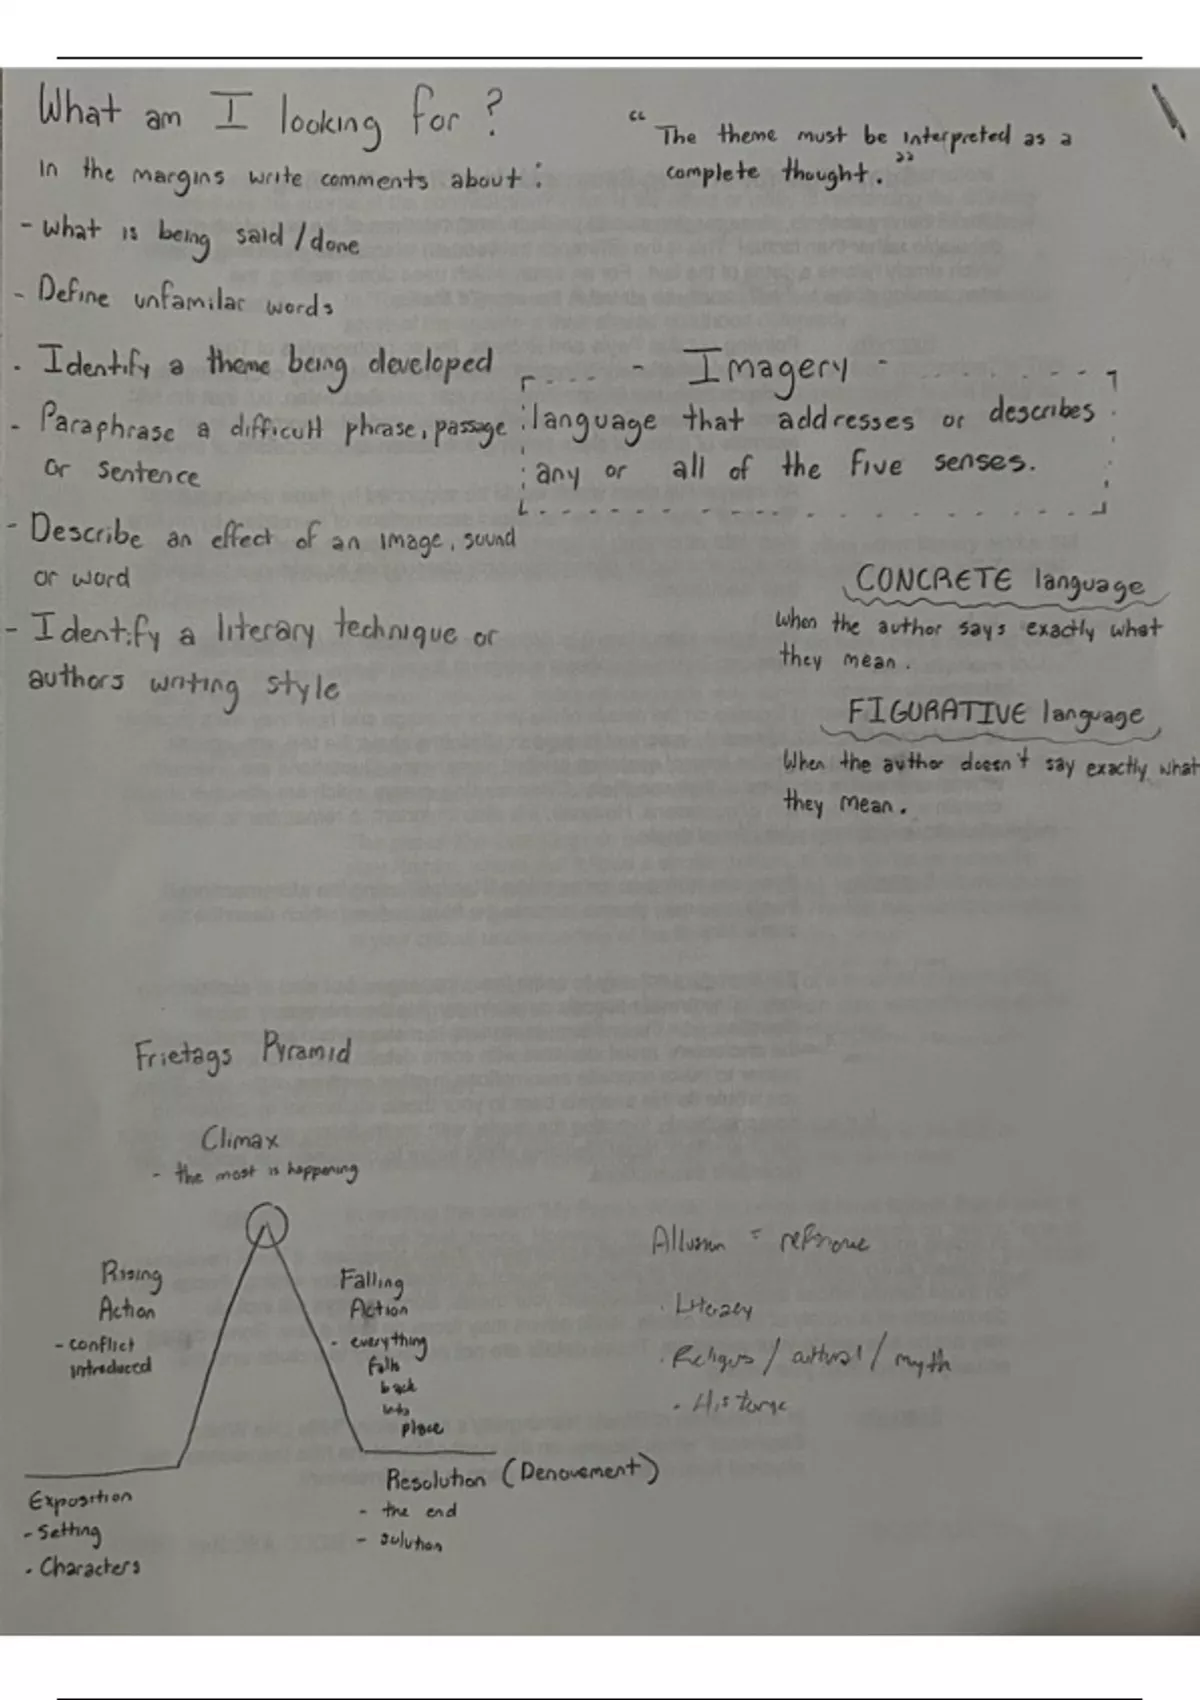 What am I looking for?
In the margins write comments about:
- What is being said/done
- Define unfamilar words
- Identify a theme being developed
- Paraphrase a difficult phrase, passage
or sentence
- Describe an effect of an image, sound
or word
- Identify a literary technique or
authors writing style
"The theme must be interpreted as a
complete thought."
- Imagery -
language that addresses or describes
any or all of the five senses.
CONCRETE language
When the author says exactly what
they mean.
FIGURATIVE language
When the author doesn't say exactly what
they mean.
Frietags Pyramid
Climax
- the most is happening
Rising
Action
- conflict
introduced
Falling
Action
- everything
falls
back
into
place
Exposition
- Setting
- Characters
Resolution (Denouement)
- the end
- solution
Allusion =
- Literary
/ myth